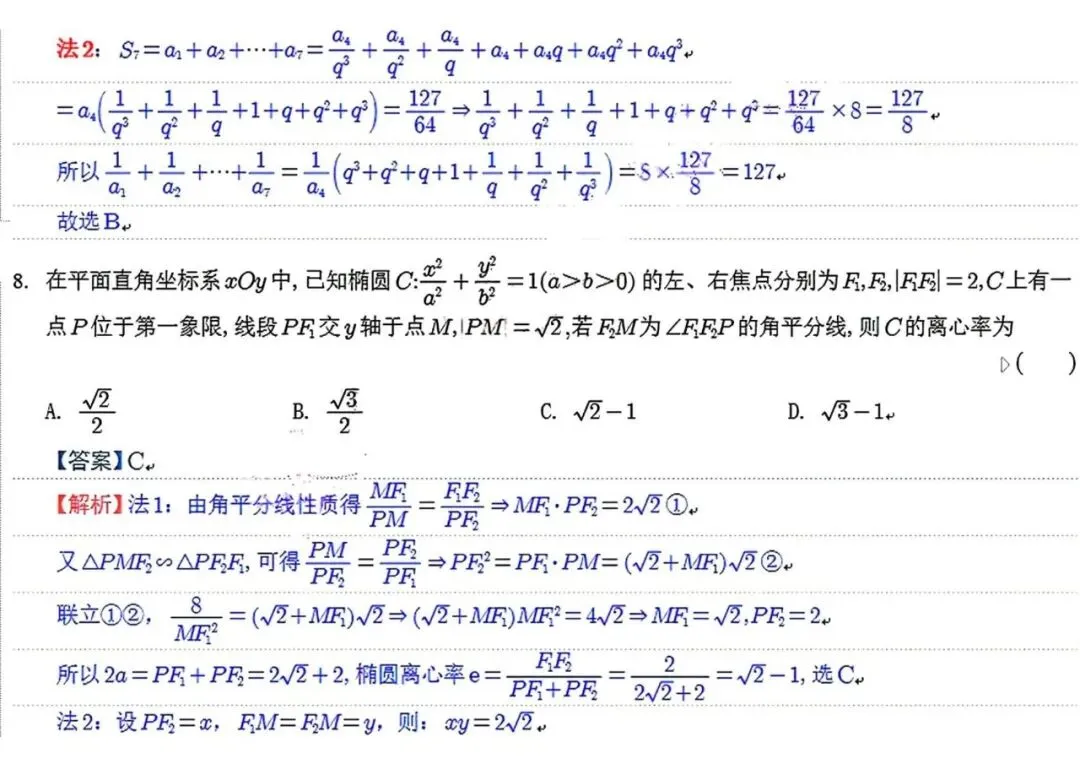 法2：S₇=a₁+a₂+⋯+a₇=a₄/q³+a₄/q²+a₄/q+a₄+a₄q+a₄q²+a₄q³
=a₄(1/q³+1/q²+1/q+1+q+q²+q³)=127/64⇒1/q³+1/q²+1/q+1+q+q²+q³=127/64×8=127/8
所以1/a₁+1/a₂+⋯+1/a₇=1/a₄(q³+q²+q+1+1/q+1/q²+1/q³)=8×127/8=127
故选B
8. 在平面直角坐标系xOy中,已知椭圆C:x²/a²+y²/b²=1(a>b>0)的左、右焦点分别为F₁,F₂,|F₁F₂|=2,C上有一
点P位于第一象限,线段PF₁交y轴于点M,|PM|=√2,若F₂M为∠F₁F₂P的角平分线,则C的离心率为
( )
A. √2/2 B. √3/2 C. √2-1 D. √3-1
【答案】C
【解析】法1：由角平分线性质得MF₁/PM=F₁F₂/PF₂⇒MF₁·PF₂=2√2①
又△PMF₂∽△PF₂F₁,可得PM/PF₂=PF₂/PF₁⇒PF₂²=PF₁·PM=(√2+MF₁)√2②
联立①②，8/MF₁²=(√2+MF₁)√2⇒(√2+MF₁)MF₁²=4√2⇒MF₁=√2,PF₂=2
所以2a=PF₁+PF₂=2√2+2,椭圆离心率e=F₁F₂/(PF₁+PF₂)=2/(2√2+2)=√2-1,选C
法2：设PF₂=x，F₁M=F₂M=y，则：xy=2√2